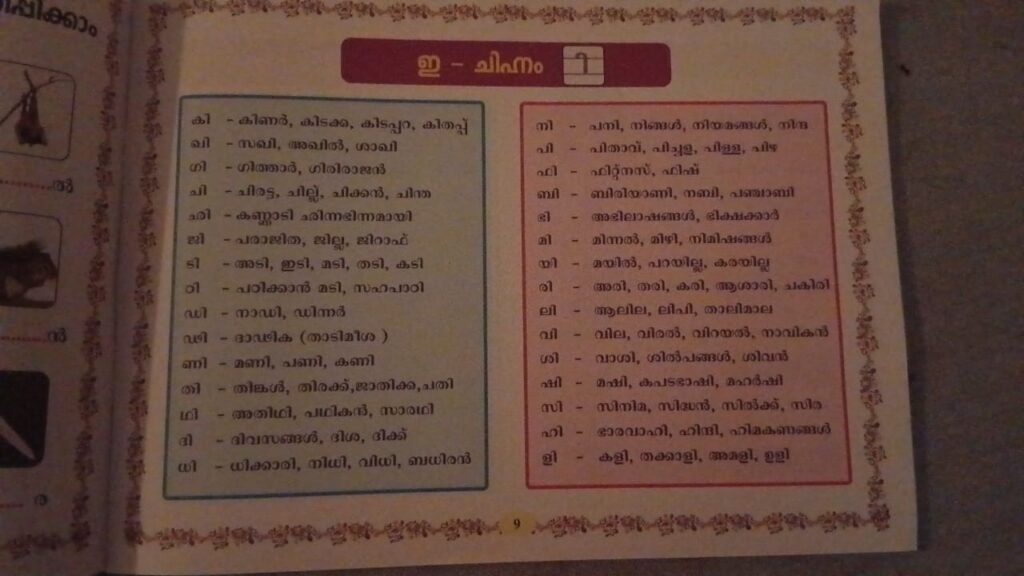 പ്പിക്കാം
ഇ - ചിഹ്നം ി
കി - കിണർ, കിടക്ക, കിടപ്പറ, കിതപ്പ്
ഖി - സഖി, അഖിൽ, ശാഖി
ഗി - ഗിത്താർ, ഗിരിരാജൻ
ചി - ചിരട്ട, ചില്ല്, ചിക്കൻ, ചിന്ത
ഛി - കണ്ണാടി ഛിന്നഭിന്നമായി
ജി - പരാജിത, ജില്ല, ജിറാഫ്
ടി - അടി, ഇടി, മടി, തടി, കടി
ഠി - പഠിക്കാൻ മടി, സഹപാഠി
ഡി - നാഡി, ഡിന്നർ
ഢി - ദാഢിക (താടിമീശ )
ണി - മണി, പണി, കണി
തി - തിങ്കൾ, തിരക്ക്,ജാതിക്ക,ചതി
ഥി - അതിഥി, പഥികൻ, സാരഥി
ദി - ദിവസങ്ങൾ, ദിശ, ദിക്ക്
ധി - ധിക്കാരി, നിധി, വിധി, ബധിരൻ
നി - പനി, നിങ്ങൾ, നിയമങ്ങൾ, നിന്ദ
പി - പിതാവ്, പിച്ചള, പിള്ള, പിഴ
ഫി - ഫിറ്റ്നസ്, ഫിഷ്
ബി - ബിരിയാണി, നബി, പഞ്ചാബി
ഭി - അഭിലാഷങ്ങൾ, ഭിക്ഷക്കാർ
മി - മിന്നൽ, മിഴി, നിമിഷങ്ങൾ
യി - മയിൽ, പറയില്ല, കരയില്ല
രി - അരി, തരി, കരി, ആശാരി, ചകിരി
ലി - ആലില, ലിപി, താലിമാല
വി - വില, വിരൽ, വിറയൽ, നാവികൻ
ശി - വാശി, ശിൽപങ്ങൾ, ശിവൻ
ഷി - മഷി, കപടഭാഷി, മഹർഷി
സി - സിനിമ, സിദ്ധൻ, സിൽക്ക്, സിര
ഹി - ഭാരവാഹി, ഹിന്ദി, ഹിമകണങ്ങൾ
ളി - കളി, തക്കാളി, അമളി, ഉളി
9